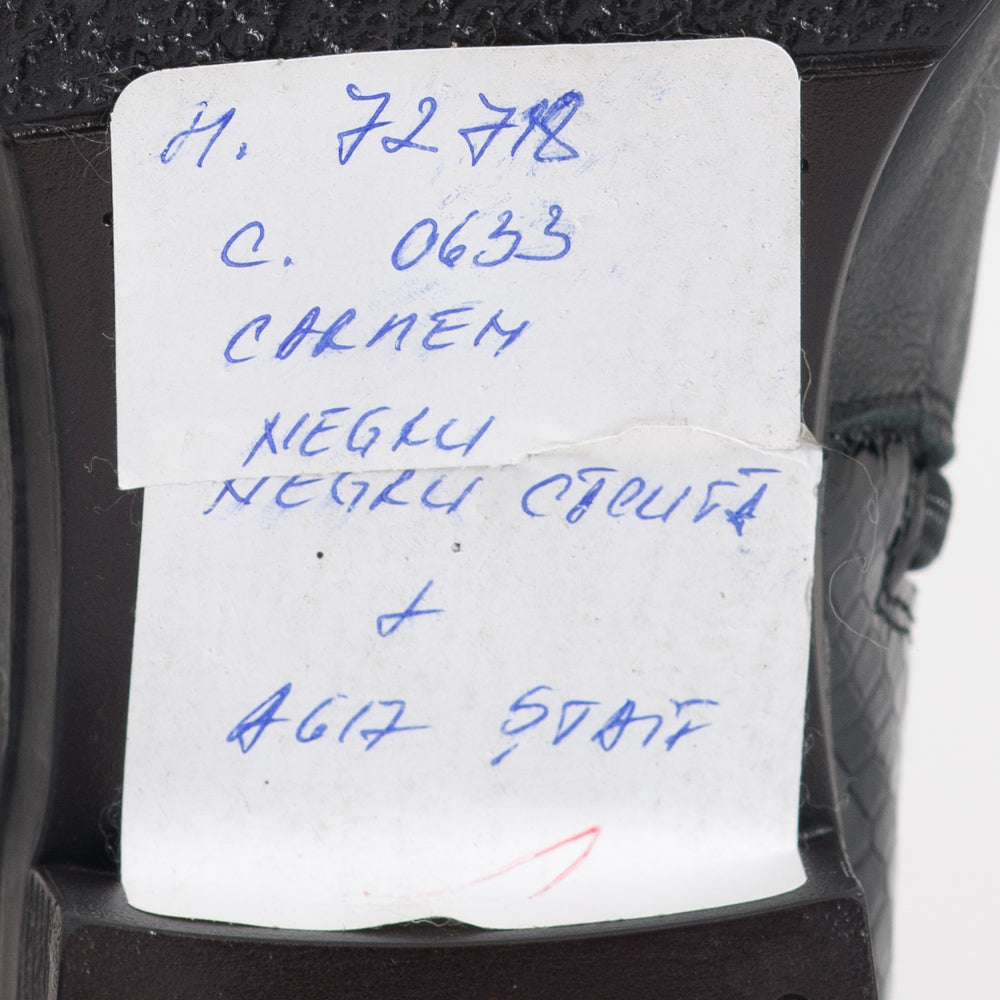 H. 7278
C. 0633
CARMEN
NEGRU
NEGRU CĂCIUTĂ
+
A617 ȘTAIF